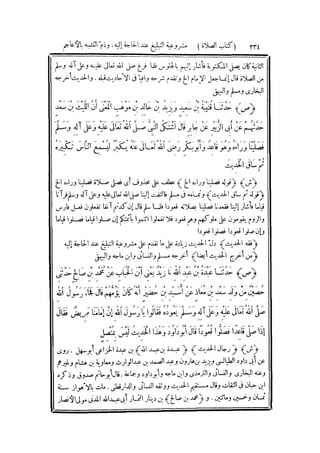 ٢٣٤ (كتاب الصلاة) مشروعية التبليغ عند الحاجة إليه. وذم التشبه بالأعاجم
الثانية كان يصلى المكتوبة فأشار إليهم بالجلوس فلما فرغ صلى الله تعالى عليه وعلى آله وسلم
من الصلاة قال إنما جعل الإمام الخ وتقدم شرحه وافيا فى الأحاديث قبله. والحديث أخرجه
البخارى ومسلم والبيهقى
﴿ص﴾ حَدَّثَنَا قُتَيْبَةُ بْنُ سَعِيدٍ وَيَزِيدُ بْنُ خَالِدِ بْنِ مَوْهَبٍ الْمَعْنَى أَنَّ اللَّيْثَ بْنَ سَعْدٍ
حَدَّثَهُمْ عَنْ أَبِي الزُّبَيْرِ عَنْ جَابِرٍ قَالَ اشْتَكَى النَّبِيُّ صَلَّى اللهُ تَعَالَى عَلَيْهِ وَعَلَى آلِهِ وَسَلَّمَ
فَصَلَّيْنَا وَرَاءَهُ وَهُوَ قَاعِدٌ وَأَبُو بَكْرٍ رَضِيَ اللهُ تَعَالَى عَنْهُ يُكَبِّرُ لِيُسْمِعَ النَّاسَ تَكْبِيرَهُ
ثُمَّ سَاقَ الْحَدِيثَ
﴿ش﴾ ﴿قوله فصلينا وراءه الخ﴾ عطف على محذوف أى فصلى صلاة فصلينا وراءه الخ
﴿قوله ثم ساق الحديث﴾ وتمامه فى مسلم فالتفت إلينا صلى الله تعالى عليه وعلى آله وسلم فرآنا
قياما فأشار إلينا فقعدنا فصلينا بصلاته قعودا فلما سلم قال إن كدتم آنفا تفعلون فعل فارس
والروم يقومون على ملوكهم وهم قعود فلا تفعلوا ائتموا بأئمتكم إن صلوا قياما فصلوا قياما
وإن صلوا قعودا فصلوا قعودا
﴿فقه الحديث﴾ دل الحديث زيادة على ما تقدم على مشروعية التبليغ عند الحاجة إليه
﴿من أخرج الحديث أيضا﴾ أخرجه مسلم والنسائى وابن ماجه والبيهقى
﴿ص﴾ حَدَّثَنَا عَبْدَةُ بْنُ عَبْدِ اللهِ نَا زَيْدٌ يَعْنِى ابْنَ الْحُبَابِ عَنْ مُحَمَّدِ بْنِ صَالِحٍ حَدَّثَنِى
حُصَيْنٌ مِنْ وَلَدِ سَعْدِ بْنِ مُعَاذٍ عَنْ أُسَيْدِ بْنِ حُضَيْرٍ أَنَّهُ كَانَ يَؤُمُّهُمْ قَالَ فَجَاءَ رَسُولُ اللهِ
صَلَّى اللهُ تَعَالَى عَلَيْهِ وَعَلَى آلِهِ وَسَلَّمَ يَعُودُهُ فَقَالُوا يَا رَسُولَ اللهِ إِنَّ إِمَامَنَا مَرِيضٌ فَقَالَ
إِذَا صَلَّى قَاعِدًا فَصَلُّوا قُعُودًا قَالَ أَبُو دَاوُدَ وَهَذَا الْحَدِيثُ لَيْسَ بِمُتَّصِلٍ
﴿ش﴾ ﴿رجال الحديث﴾ ﴿عبدة بن عبد الله﴾ بن عبدة الخزاعى أبو سهل. روى
عن أبى داود الطيالسى ويزيد بن هارون وعبد الصمد بن عبد الوارث ومعاوية بن هشام وغيرهم
وعنه البخارى والنسائى والترمذى وابن ماجه وأبو داود وجماعة. قال أبو حاتم صدوق وذكره
ابن حبان فى الثقات وقال مستقيم الحديث ووثقه النسائى والدارقطنى. مات بالأهواز سنة
ثمان وخمسين ومائتين. و ﴿محمد بن صالح﴾ بن دينار التمار أبى عبد الله المدنى مولى الأنصار